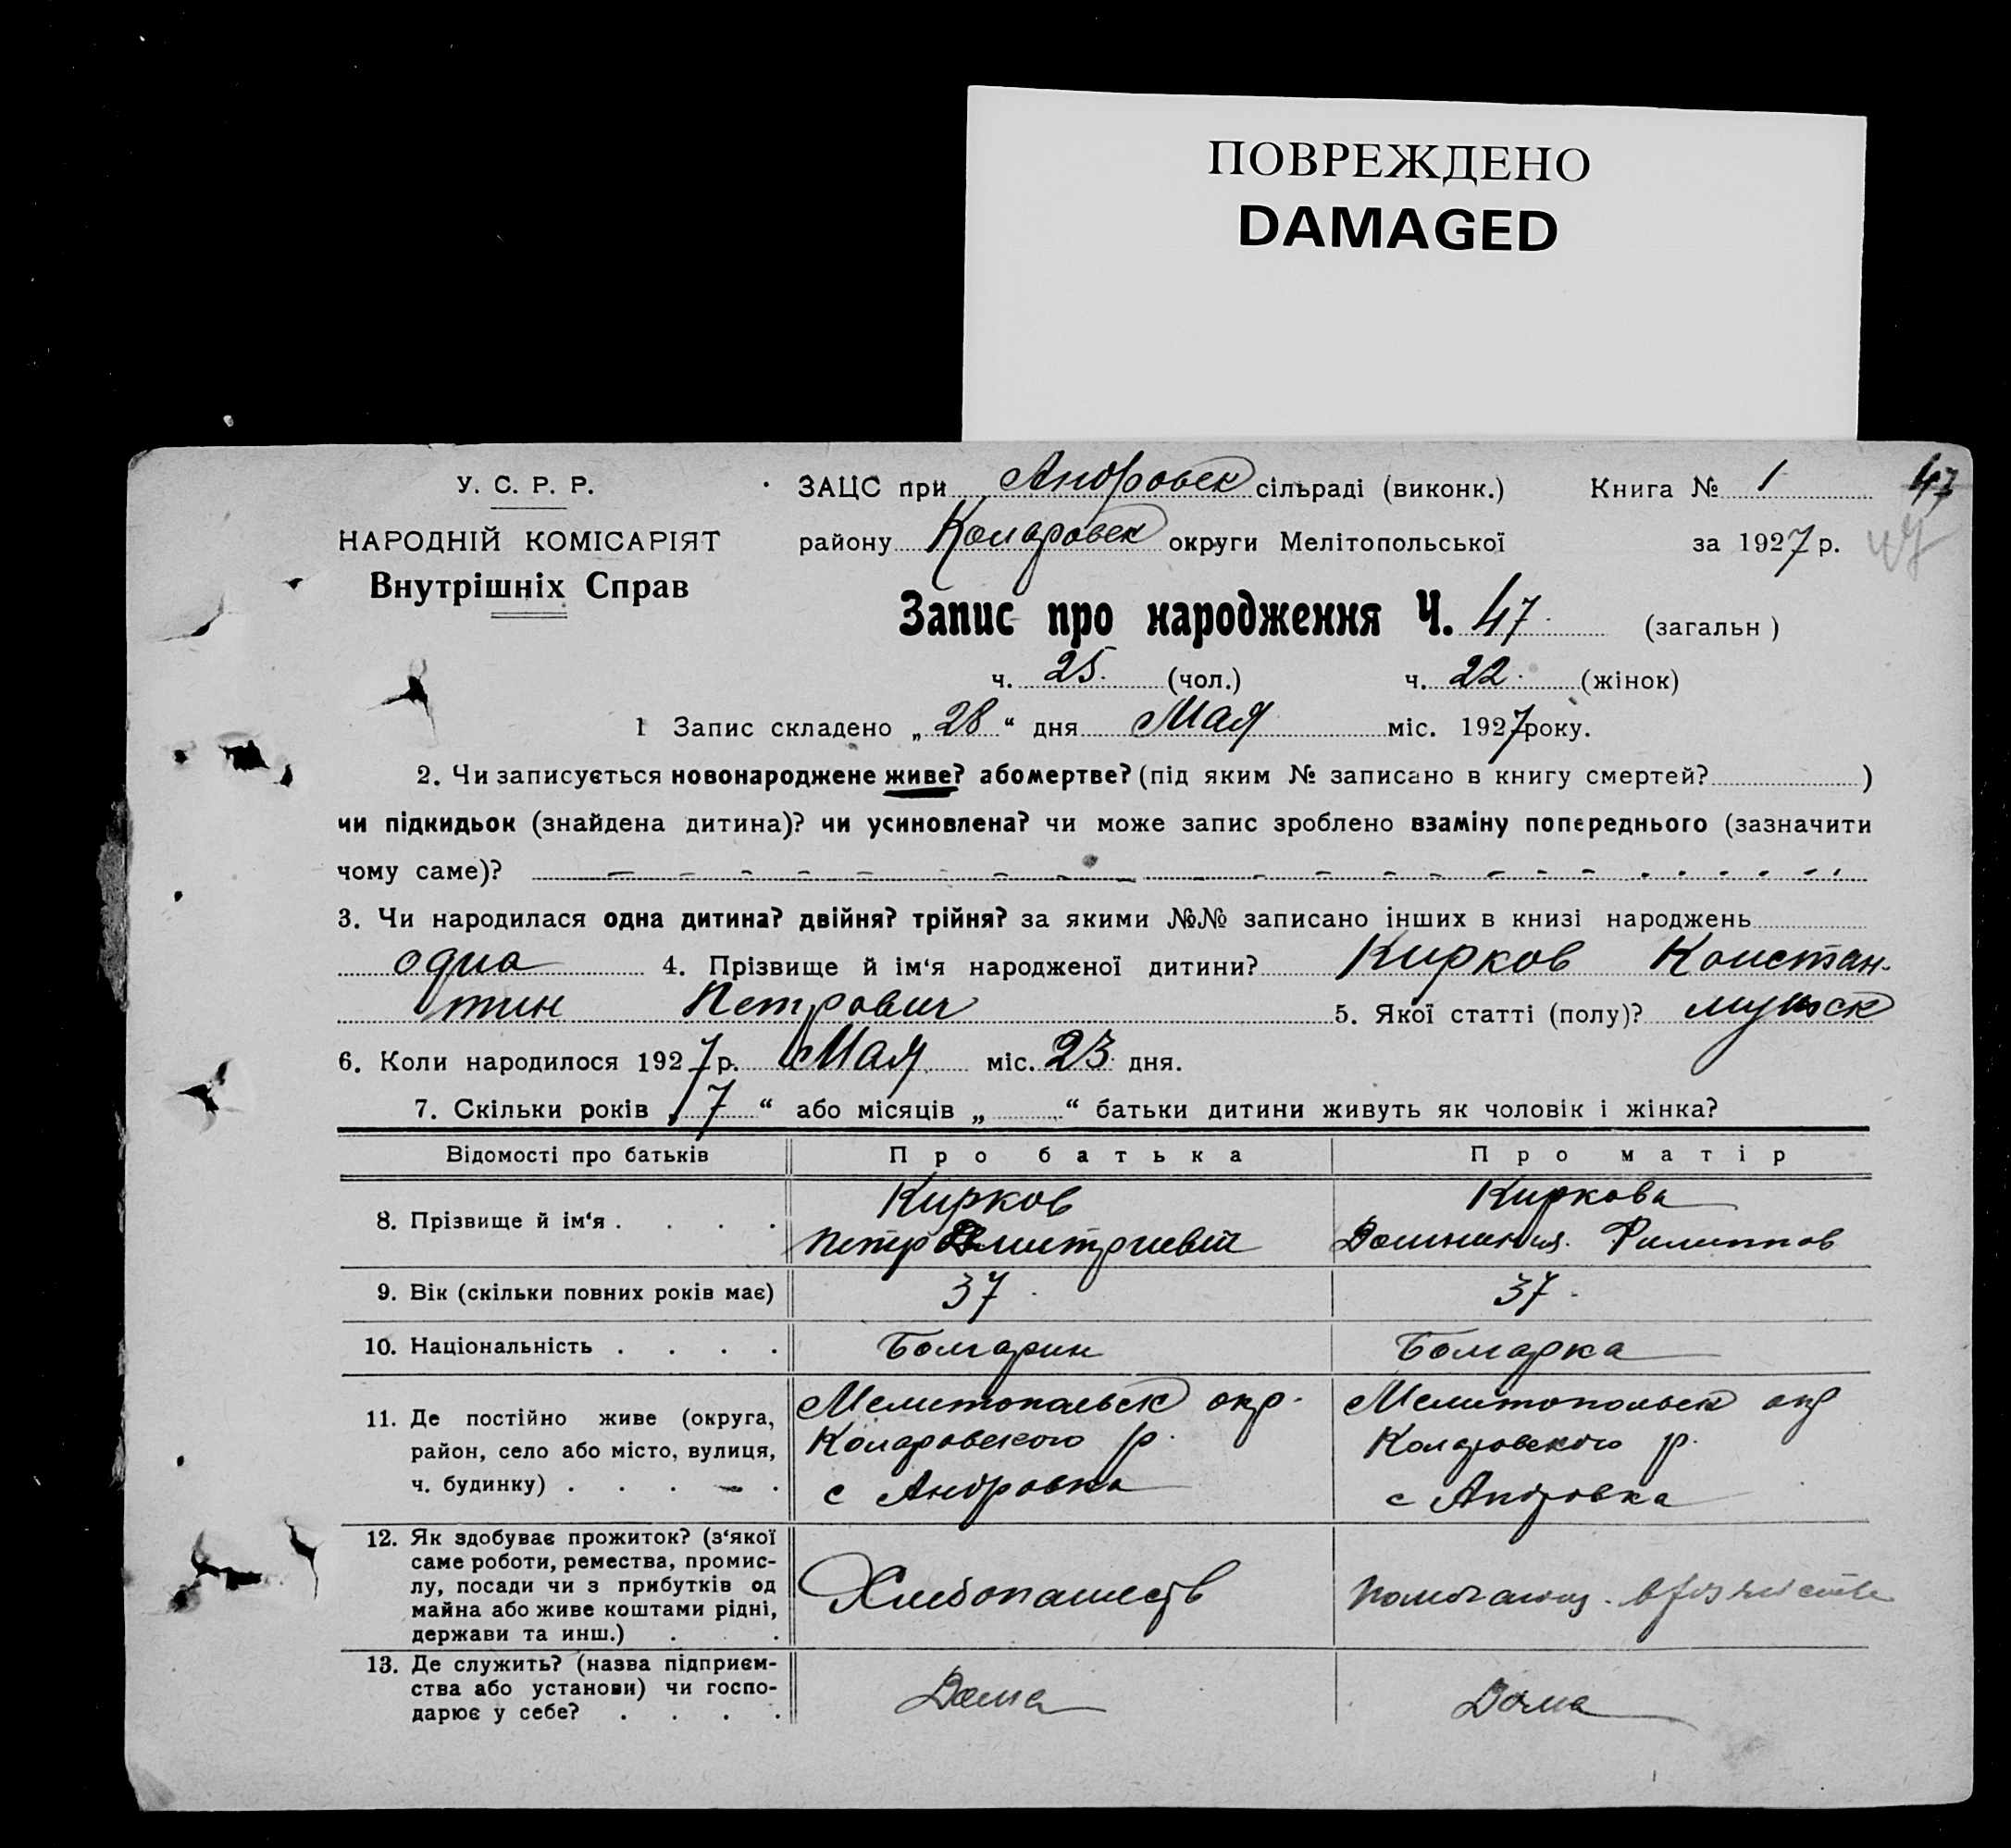 ПОВРЕЖДЕНО
DAMAGED
У. С. Р. Р.
НАРОДНІЙ КОМІСАРІЯТ
Внутрішніх Справ
ЗАЦС при Андровск сільраді (виконк.) Книга № 1 47
району Коларовск округи Мелітопольської за 1927 р. 47
Запис про народження Ч. 47 (загальн)
ч. 25. (чол.) ч. 22. (жінок)
1 Запис складено „28“ дня Мая міс. 1927 року.
2. Чи записується новонароджене живе? або мертве? (під яким № записано в книгу смертей? )
чи підкидьок (знайдена дитина)? чи усиновлена? чи може запис зроблено взаміну попереднього (зазначити
чому саме)?
3. Чи народилася одна дитина? двійня? трійня? за якими №№ записано інших в книзі народжень
одна 4. Прізвище й ім‘я народженої дитини? Кирков Констан-
тин Петрович 5. Якої статті (полу)? мужск
6. Коли народилося 1927 р. Мая міс. 23 дня.
7. Скільки років „17“ або місяців „ “ батьки дитини живуть як чоловік і жінка?
Відомості про батьків Про батька Про матір
8. Прізвище й ім‘я . . . . Кирков Киркова
Петр Дмитриевич Домникия. Филиппов
9. Вік (скільки повних років має) 37. 37.
10. Національність . . . . Болгарин Болгарка
11. Де постійно живе (округа, Мелитопольск окр. Мелитопольск окр
район, село або місто, вулиця, Коларовского р. Коларовского р.
ч. будинку) . . . . . с Андровка с Андровка
12. Як здобуває прожиток? (з‘якої
саме роботи, ремества, промис-
лу, посади чи з прибутків од Хлебопашеств
майна або живе коштами рідні,
держави та инш.) . .
13. Де служить? (назва підприєм-
ства або установи) чи госпо- Дома Дома
дарює у себе? . . . .